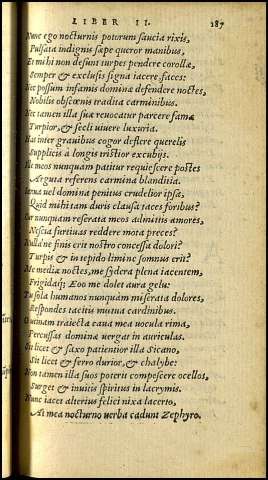 LIBER II. 187
Nunc ego nocturnis potorum saucia rixis,
Pulsata indignis sæpe queror manibus,
Et mihi non desunt turpes pendere corollæ,
Semper & exclusis signa iacere faces:
Nec possum infamis domina defendere noctes,
Nobilis obscœnis tradita carminibus.
Nec tamen illa suæ reuocatur parcere famæ
Turpior, & secli uiuere luxuria.
Hai inter grauibus cogor deflere querelis
Supplicis a longis tristior excubijs.
Ille meos nunquam patitur requiescere postes
Arguta referens carmina blanditia.
Ianua uel domina penitus crudelior ipsa,
Quid mihi tam duris clausa taces foribus?
Cur nunquam reserata meos admittis amores,
Nescia furtiuas reddere mota preces?
Nulla ne finis erit nostro concessa dolori?
Turpis & in tepido limine somnus erit?
Me mediæ noctes, me sydera plena iacentem,
Frigidaq; Eoo me dolet aura gelu:
Tu sola humanos nunquam miserata dolores,
Respondes tacitis mutua cardinibus.
O utinam traiecta caua mea uocula rima,
Percussas dominæ uergat in auriculas.
Sit licet & saxo patientior illa Sicano,
Sit licet & ferro durior, & chalybe:
Non tamen illa suos poterit compescere ocellos,
Surget & inuitis spiritus in lacrymis.
Nunc iacet alterius felici nixa lacerto,
At mea nocturno uerba cadunt Zephyro.